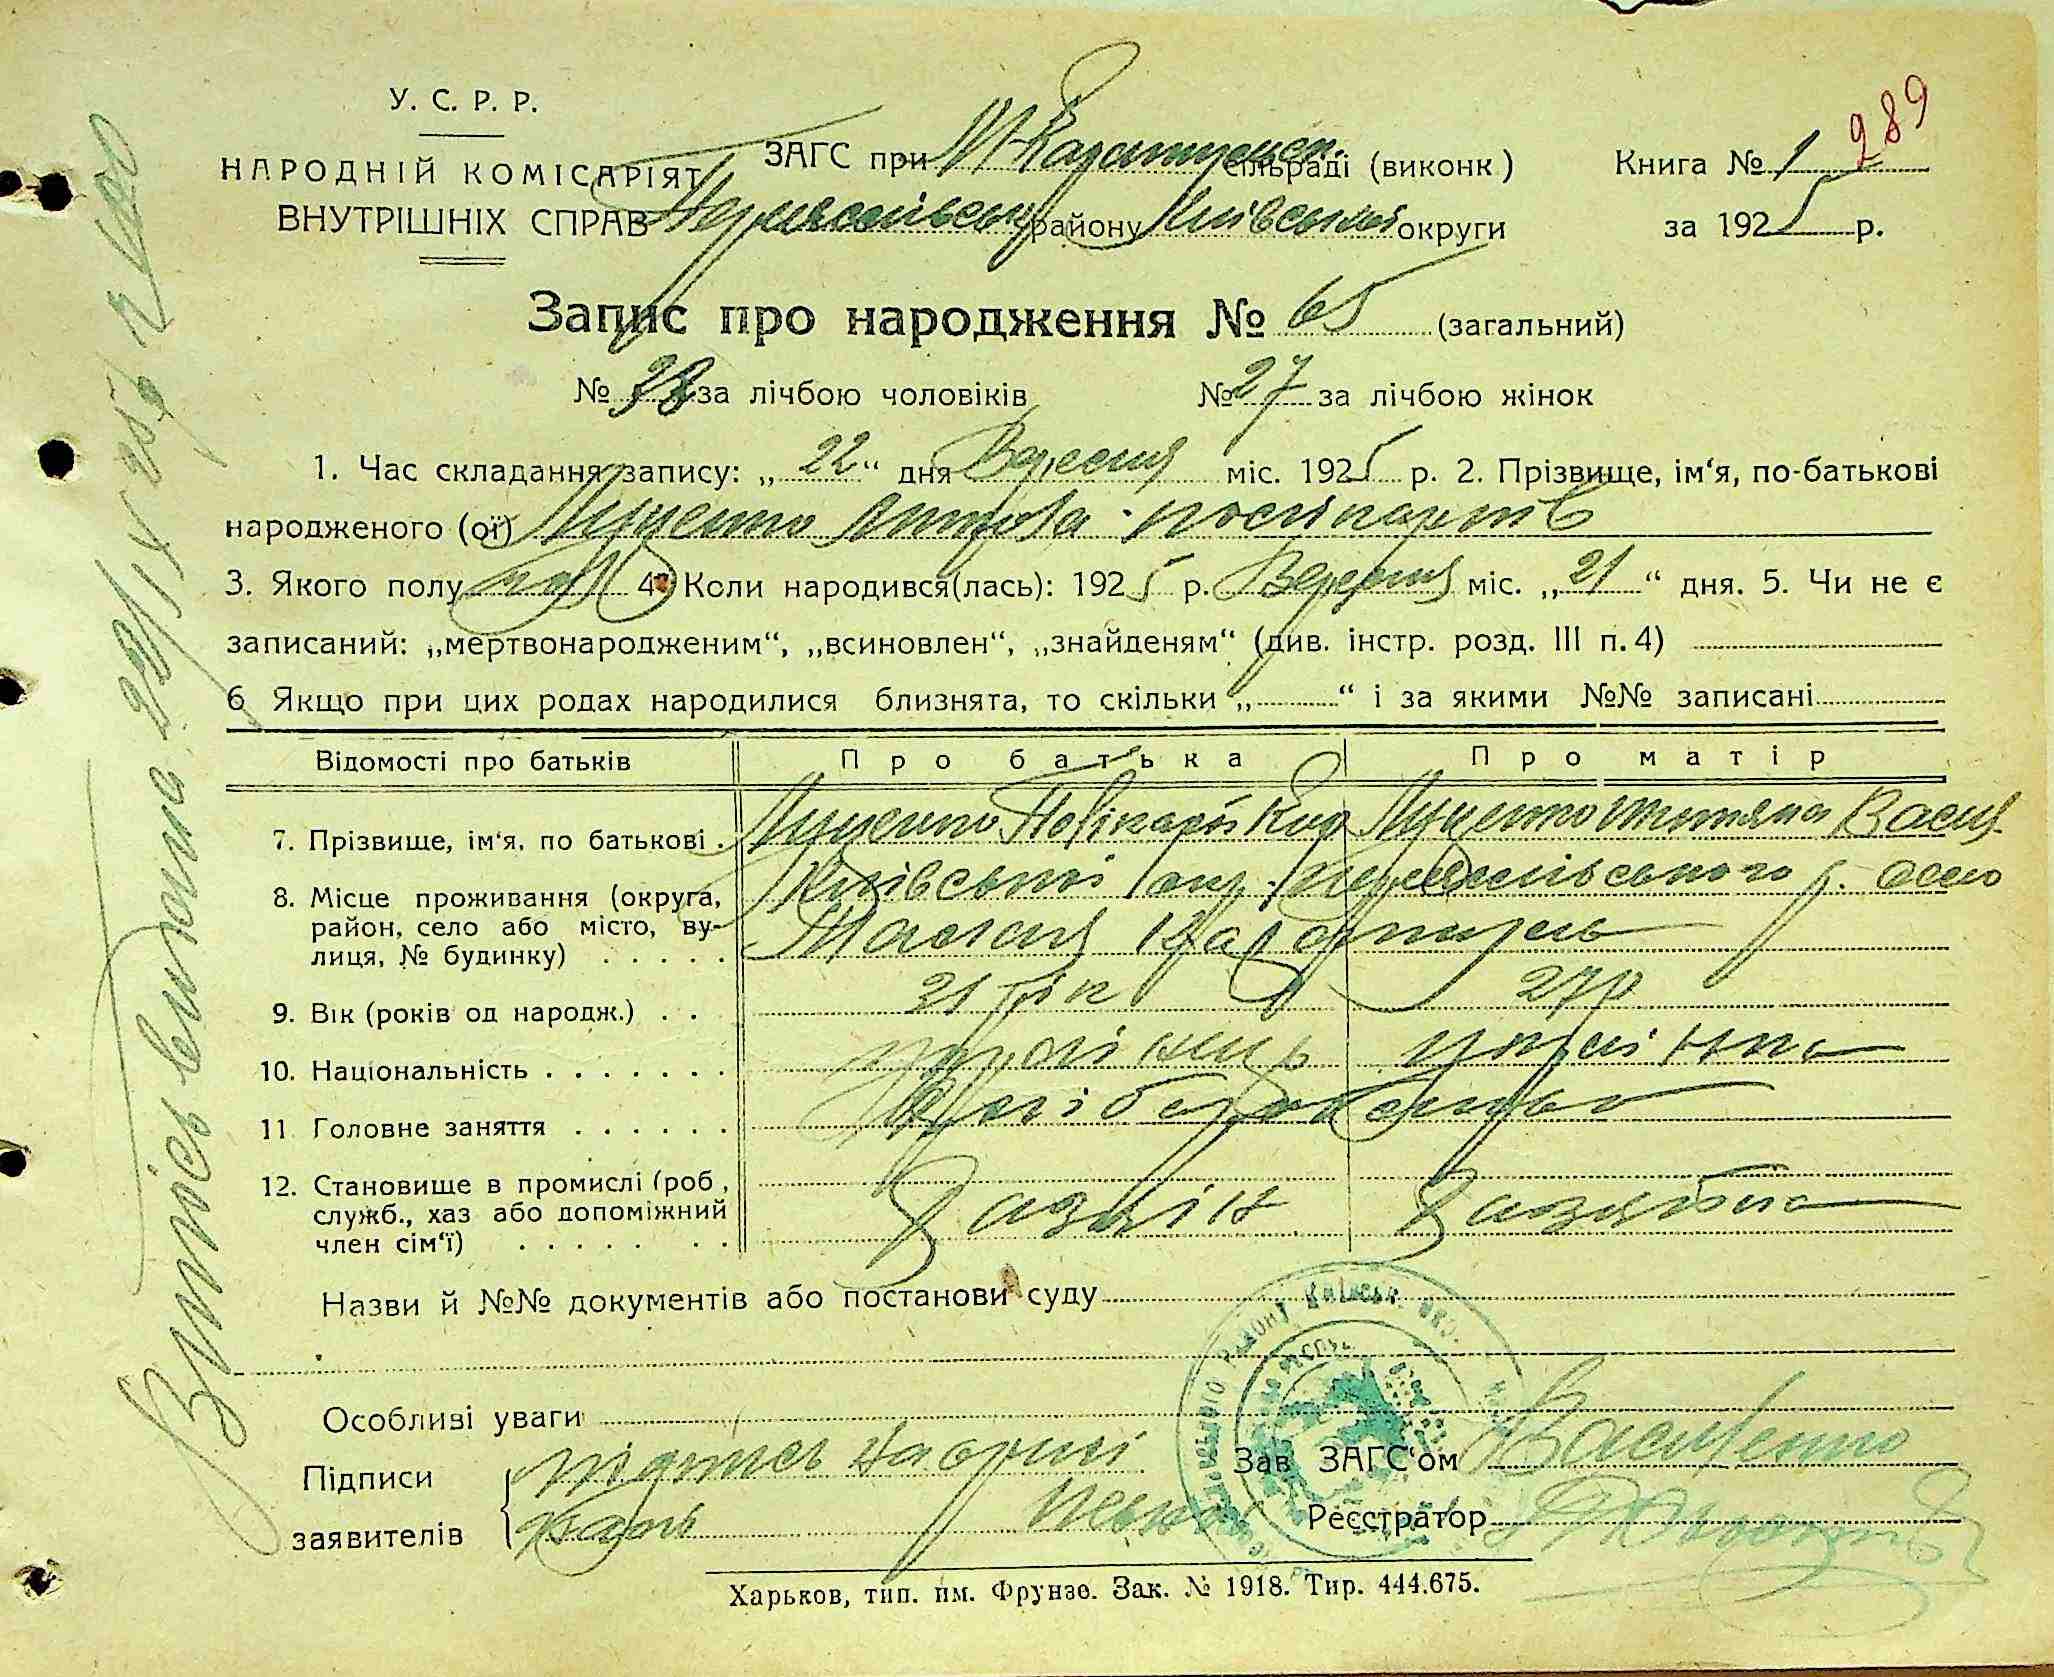 У. С. Р. Р.
НАРОДНІЙ КОМІСАРІЯТ
ВНУТРІШНІХ СПРАВ
ЗАГС при М-Каратульск. сільраді (виконк)
району Київської округи
Книга № 1 289
за 1925 р.
Запис про народження № 65 (загальний)
№ 38 за лічбою чоловіків № 27 за лічбою жінок
1. Час складання запису: „22“ дня Вересня міс. 1925 р. 2. Прізвище, ім‘я, по-батькові
народженого (ої) Луценко
3. Якого полу чол 4. Коли народився(лась): 1925 р. Вересня міс. „21“ дня. 5. Чи не є
записаний: „мертвонародженим“, „всиновлен“, „знайденям“ (див. інстр. розд. III п. 4)
6 Якщо при цих родах народилися близнята, то скільки „ “ і за якими №№ записані
Відомості про батьків Про батька Про матір
7. Прізвище, ім‘я, по батькові . Луценко Луценко Татяна Васил.
8. Місце проживання (округа, район, село або місто, вулиця, № будинку) Київської окр. Переяслівського р. село
Каратуль
9. Вік (років од народж.) . . 31 рік 27 р
10. Національність . . . . . . . українець українка
11 Головне заняття . . . . . . Хліборобство
12. Становище в промислі (роб, служб., хаз або допоміжний член сім‘ї) Хазяїн Хазяйка
Назви й №№ документів або постанови суду
Особливі уваги
Підписи заявителів
Зав ЗАГС‘ом Василенко
Реєстратор
Харьков, тип. им. Фрунзе. Зак. № 1918. Тир. 444.675.
Витпісь видана 22/IX 25 р.